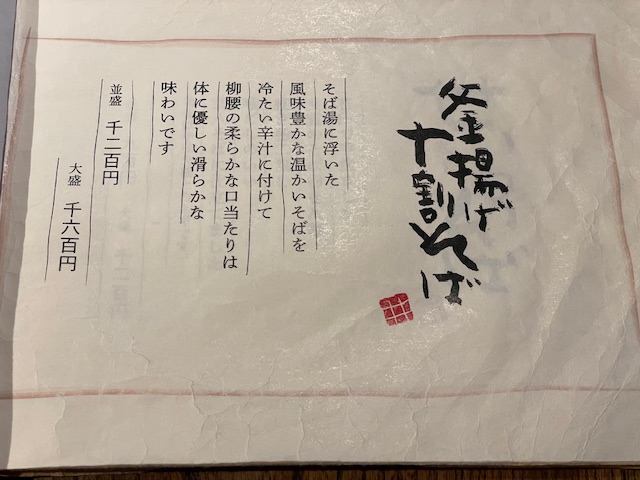 釜揚げ
十割そば
そば湯に浮いた
風味豊かな温かいそばを
冷たい辛汁に付けて
柳腰の柔らかな口当たりは
体に優しい滑らかな
味わいです
並盛 千二百円
大盛 千六百円